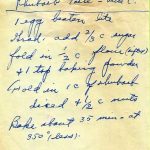 Rhubarb
1 egg beaten lite
add 2/3 c sugar
fold in 1/2 c flour (sifted)
+ 1 tsp baking powder
Fold in 1 c rhubarb
diced + 1/2 c nuts
Bake about 35 min - at
350° (glass).